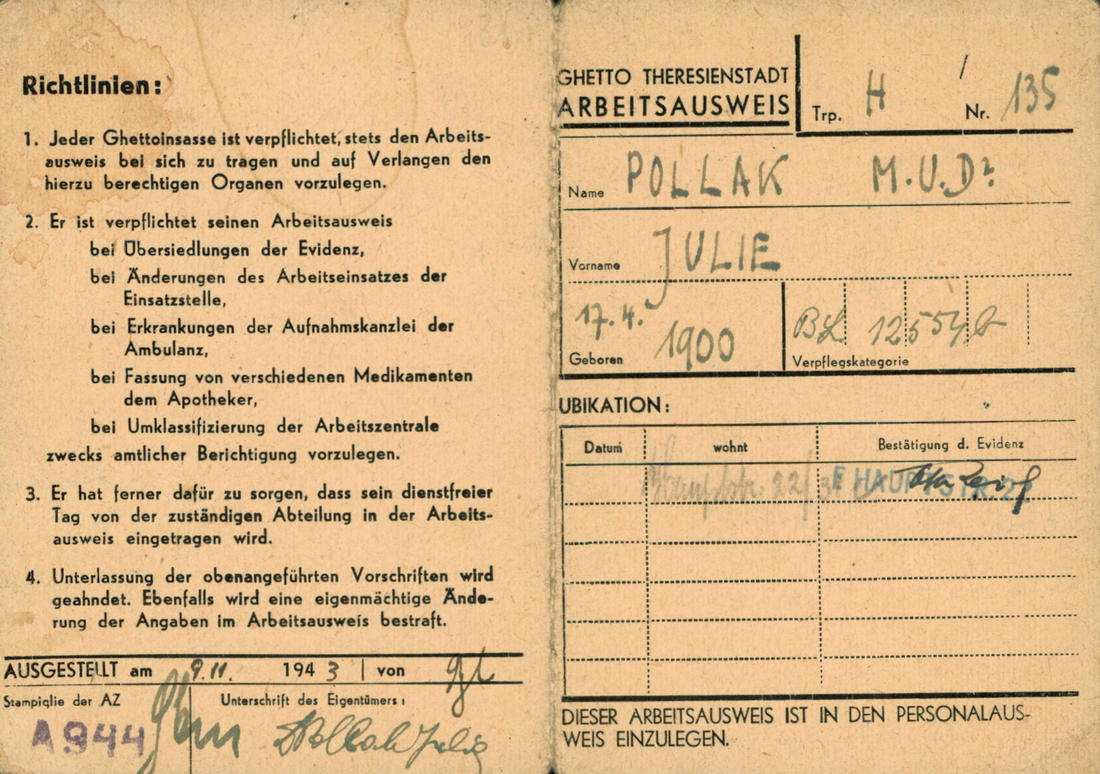 Richtlinien:
1. Jeder Ghettoinsasse ist verpflichtet, stets den Arbeits-
ausweis bei sich zu tragen und auf Verlangen den
hierzu berechtigen Organen vorzulegen.
2. Er ist verpflichtet seinen Arbeitsausweis
bei Übersiedlungen der Evidenz,
bei Änderungen des Arbeitseinsatzes der
Einsatzstelle,
bei Erkrankungen der Aufnahmskanzlei der
Ambulanz,
bei Fassung von verschiedenen Medikamenten
dem Apotheker,
bei Umklassifizierung der Arbeitszentrale
zwecks amtlicher Berichtigung vorzulegen.
3. Er hat ferner dafür zu sorgen, dass sein dienstfreier
Tag von der zuständigen Abteilung in der Arbeits-
ausweis eingetragen wird.
4. Unterlassung der obenangeführten Vorschriften wird
geahndet. Ebenfalls wird eine eigenmächtige Ände-
rung der Angaben im Arbeitsausweis bestraft.
AUSGESTELLT am 9.11. 1943 | von
Stampiglie der AZ
Unterschrift des Eigentümers:
A944
Pollak Julie
GHETTO THERESIENSTADT
ARBEITSAUSWEIS
Trp. H / Nr. 135
Name POLLAK M.U.Dr.
Vorname JULIE
Geboren 17.4. 1900
Verpflegskategorie
UBIKATION:
Datum wohnt Bestätigung d. Evidenz
Hauptstr. 22/ HAUPTSTR. 22
DIESER ARBEITSAUSWEIS IST IN DEN PERSONALAUS-
WEIS EINZULEGEN.